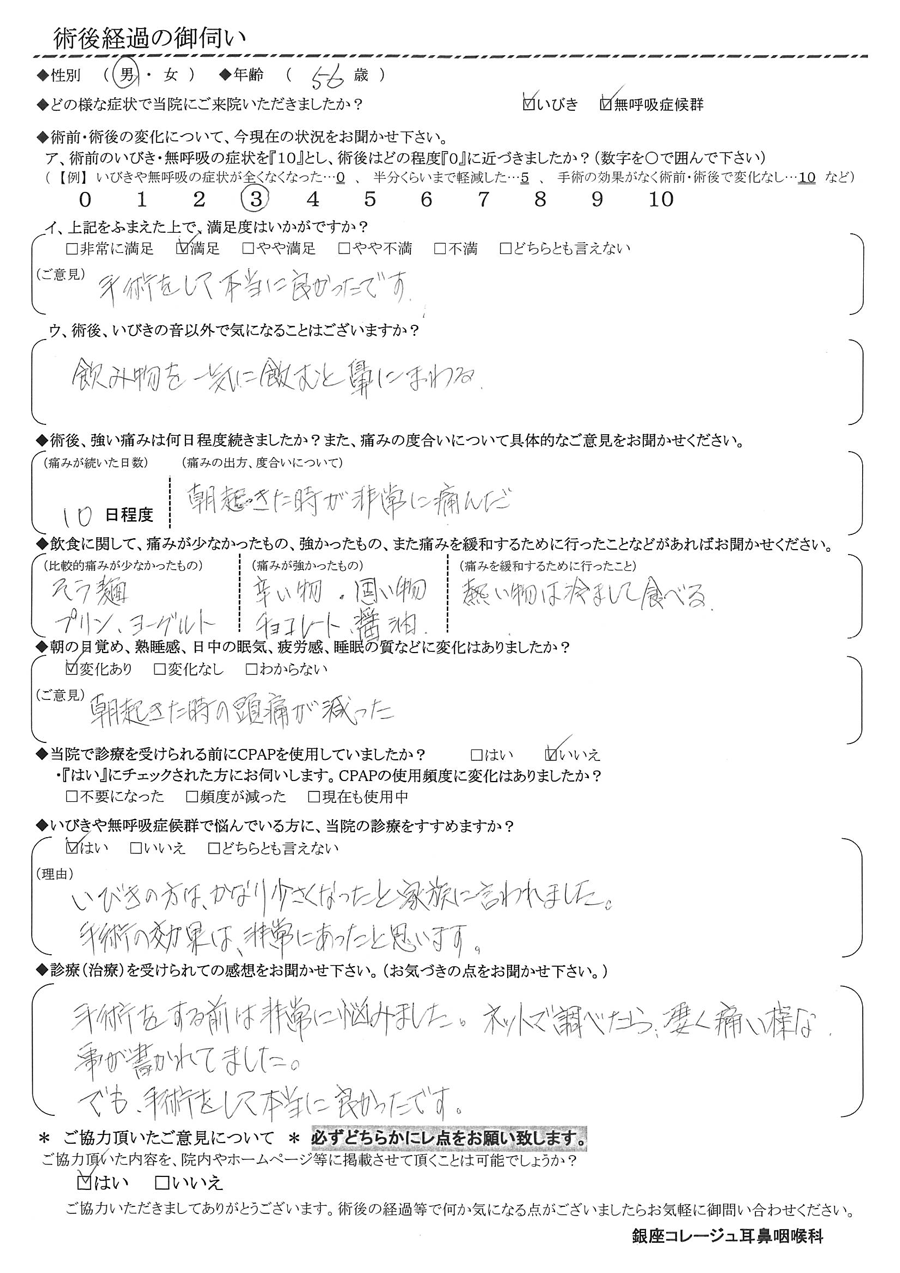 術後経過の御伺い
◆性別 （ 男 ・ 女 ） ◆年齢 （ 56 歳 ）
◆どの様な症状で当院にご来院いただきましたか？ ☑いびき ☑無呼吸症候群
◆術前・術後の変化について、今現在の状況をお聞かせ下さい。
ア、術前のいびき・無呼吸の症状を『10』とし、術後はどの程度『0』に近づきましたか？（数字を〇で囲んで下さい）
（ 【例】 いびきや無呼吸の症状が全くなくなった…0 、 半分くらいまで軽減した…5 、 手術の効果がなく術前・術後で変化なし…10 など）
0 1 2 3 4 5 6 7 8 9 10
イ、上記をふまえた上で、満足度はいかがですか？
□非常に満足 ☑満足 □やや満足 □やや不満 □不満 □どちらとも言えない
（ご意見） 手術をして本当に良かったです
ウ、術後、いびきの音以外で気になることはございますか？
飲み物を一気に飲むと鼻にまわる。
◆術後、強い痛みは何日程度続きましたか？また、痛みの度合いについて具体的なご意見をお聞かせください。
（痛みが続いた日数） （痛みの出方、度合いについて）
10 日程度 朝起きた時が非常に痛んだ
◆飲食に関して、痛みが少なかったもの、強かったもの、また痛みを緩和するために行ったことなどがあればお聞かせください。
（比較的痛みが少なかったもの） （痛みが強かったもの） （痛みを緩和するために行ったこと）
そう麺 辛い物・固い物 熱い物は冷まして食べる。
プリン、ヨーグルト チョコレート、醤油。
◆朝の目覚め、熟睡感、日中の眠気、疲労感、睡眠の質などに変化はありましたか？
☑変化あり □変化なし □わからない
（ご意見） 朝起きた時の頭痛が減った
◆当院で診療を受けられる前にCPAPを使用していましたか？ □はい ☑いいえ
・『はい』にチェックされた方にお伺いします。CPAPの使用頻度に変化はありましたか？
□不要になった □頻度が減った □現在も使用中
◆いびきや無呼吸症候群で悩んでいる方に、当院の診療をすすめますか？
☑はい □いいえ □どちらとも言えない
（理由）
いびきの方は、かなり少さくなったと家族に言われました。
手術の効果は、非常にあったと思います。
◆診療（治療）を受けられての感想をお聞かせ下さい。（お気づきの点をお聞かせ下さい。）
手術をする前は非常に悩みました。ネットで調べたら、凄く痛い様な
事が書かれてました。
でも、手術をして本当に良かったです。
＊ ご協力頂いたご意見について ＊ 必ずどちらかにレ点をお願い致します。
ご協力頂いた内容を、院内やホームページ等に掲載させて頂くことは可能でしょうか？
☑はい □いいえ
ご協力いただきましてありがとうございます。術後の経過等で何か気になる点がございましたらお気軽に御問い合わせください。
銀座コレージュ耳鼻咽喉科